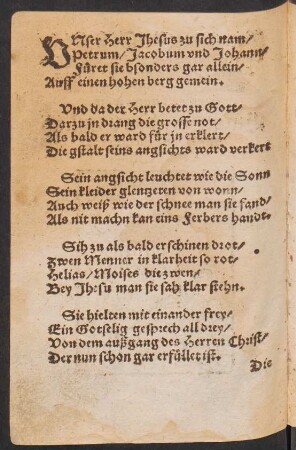 VNser Herr Jhesus zu sich nam/
Petrum/ Jacobum vnd Johann/
Füret sie bsonders gar allein/
Auff einen hohen berg gemein.
Vnd da der Herr betet zu Gott/
Darzu jn drang die grosse not/
Als bald er ward für jn erklert/
Die gstalt seins angsichts ward verkert
Sein angsicht leuchtet wie die Sonn
Sein kleider glentzeten von wonn/
Auch weiß wie der schnee man sie fand/
Als nit machn kan eins Ferbers handt.
Sih zu als bald erschinen drot/
Zwen Menner in klarheit so rot/
Helias/ Moises die zwen/
Bey Jhesu man sie sah klar stehn.
Sie hielten mit einander frey/
Ein Gotselig gesprech all drey/
Von dem außgang des Herren Christ/
Der nun schon gar erfüllet ist.
Die